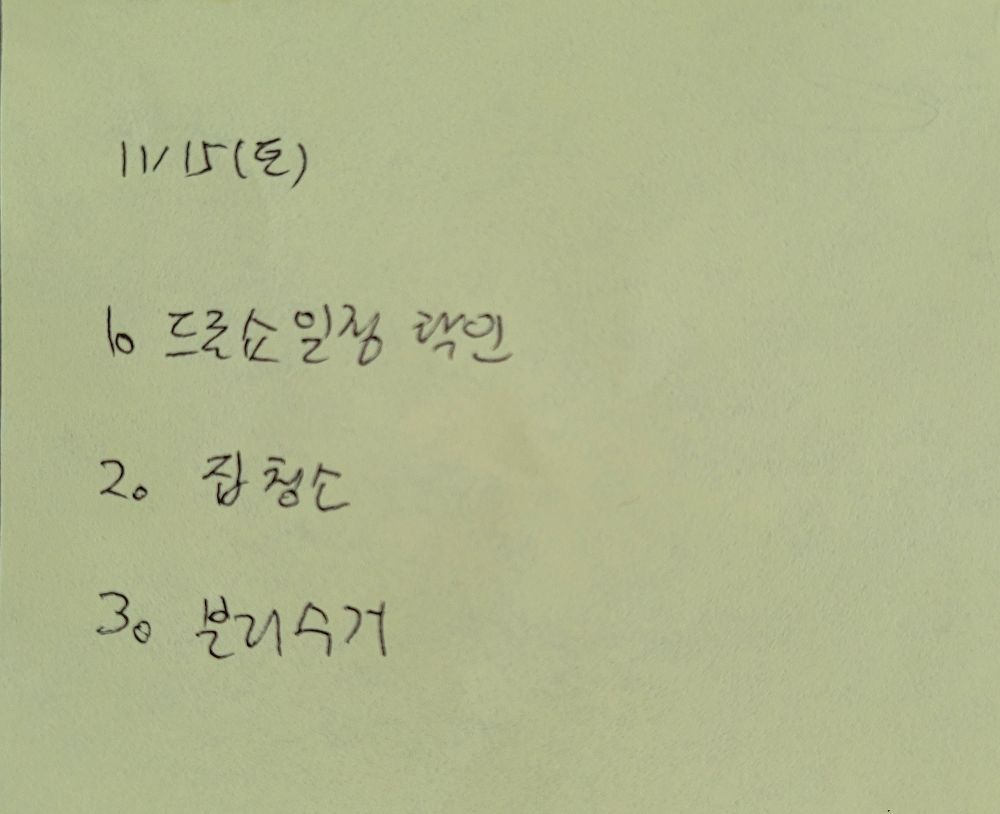 11/15(토)
1. 드론쇼 일정 확인
2. 집 청소
3. 분리수거